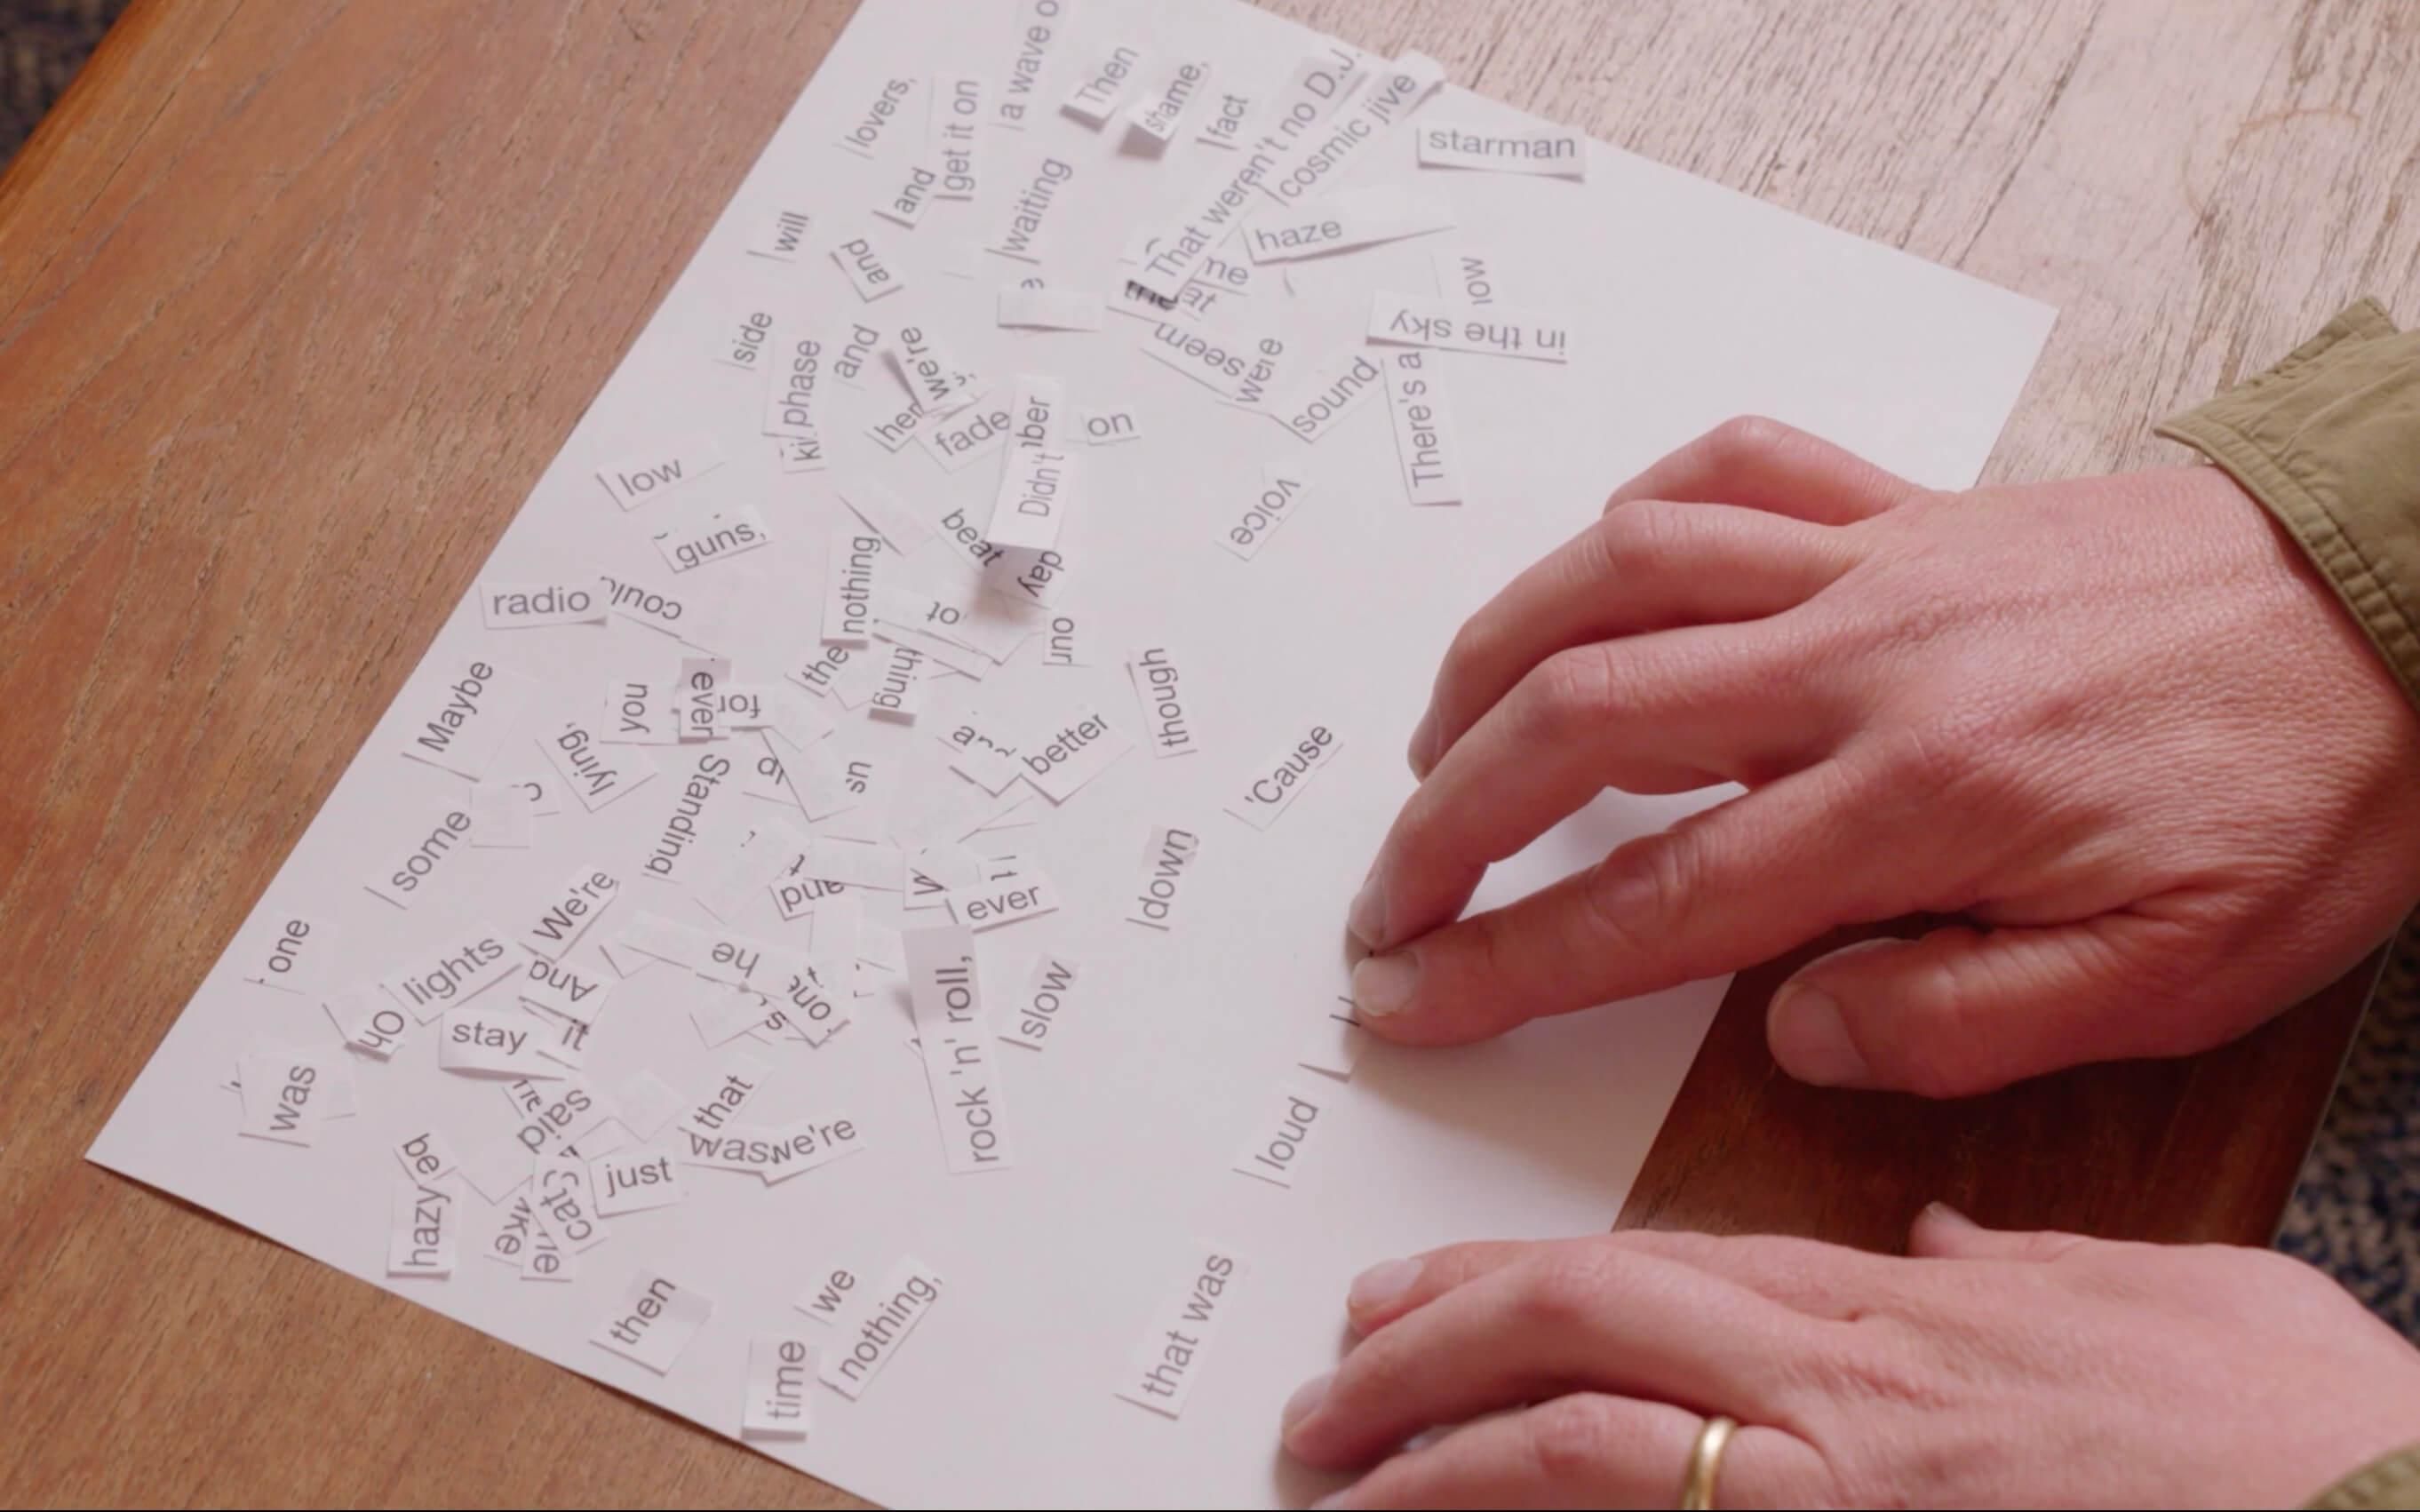 lovers,
get it on
a wave o
Then
shame,
fact
That weren't no D.J.
cosmic jive
starman
and
waiting
haze
will
and
in the sky
side
phase
and
we're
her
fade
Didn't
on
seem
were
sound
There's a
low
guns,
voice
beat
day
radio
could
nothing
to
our
the
thing
though
Maybe
you
ever
for
lying,
Standing
us
better
'Cause
some
down
and
ever
We're
one
lights
And
he
rock 'n' roll,
slow
Oh
stay
it
was
said
that
was
we're
loud
be
hazy
cat
just
then
we
nothing,
time
that was